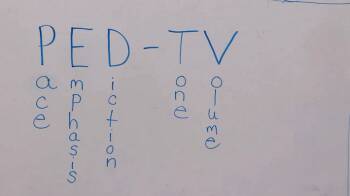 PED-TV
ace
mphasis
iction
one
olume